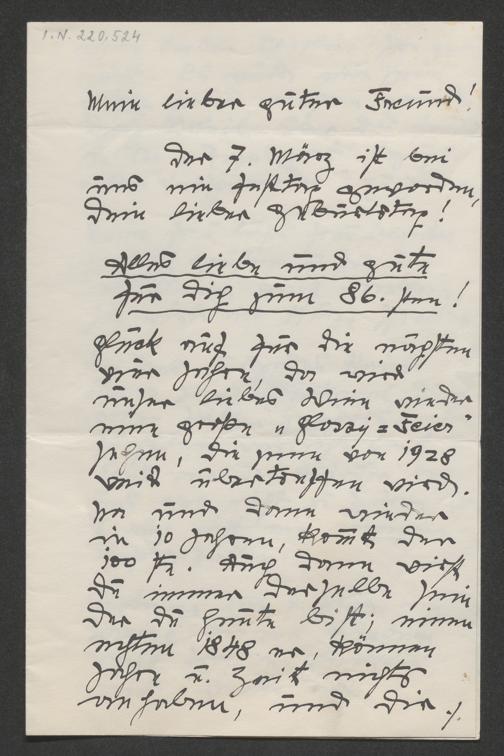 I.N. 220.524
Mein lieber guter Freund!
Der 7. März ist bei
uns ein Festtag geworden,
Dein lieber Geburtstag!
Alles liebe und gute
für Dich zum 86. sten!
Glück auf für die nächsten
vier Jahre, da wird
unser liebes Wien wieder
eine große "Glossy-Feier"
sehen, die jene von 1928
weit übertreffen wird.
Na und dann wieder
in 10 Jahren, kommt der
100 te. Auch dann wirst
Du immer derselbe sein
der Du heute bist; einem
echten 1848 er, können
Jahre u. Zeit nichts
anhaben, und die ./.